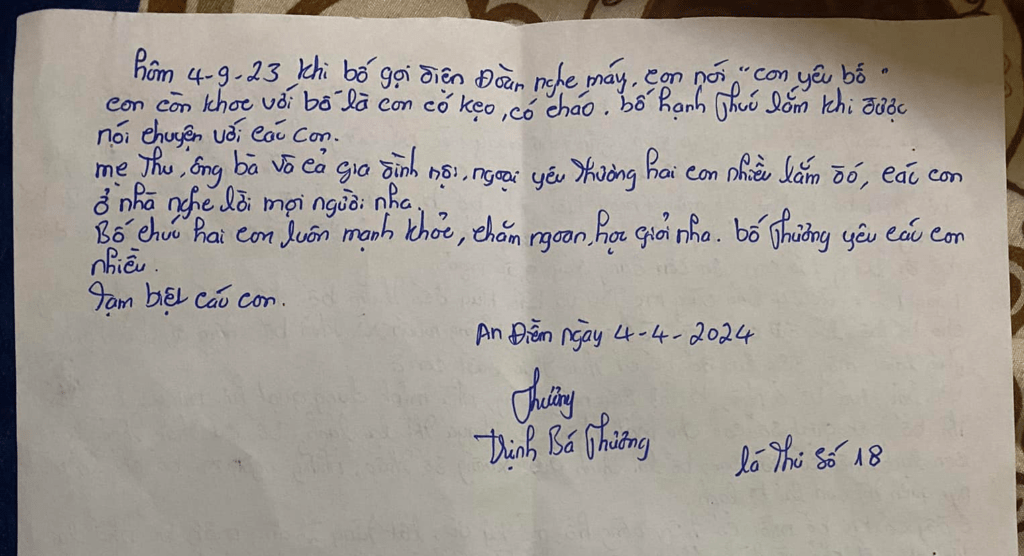 hôm 4-9-23 khi bố gọi điện Đoàn nghe máy, con nói "con yêu bố"
con còn khoe với bố là con có kẹo, có cháo. bố hạnh Phúc lắm khi được
nói chuyện với các con.
mẹ Thu, ông bà và cả gia đình nội, ngoại yêu thương hai con nhiều lắm đó, các con
ở nhà nghe lời mọi người nha.
Bố chúc hai con luôn mạnh khỏe, chăm ngoan, học giỏi nha. bố thương yêu các con
nhiều.
Tạm biệt các con.
An Điềm ngày 4-4-2024
Phương
Trịnh Bá Phương
lá thư số 18